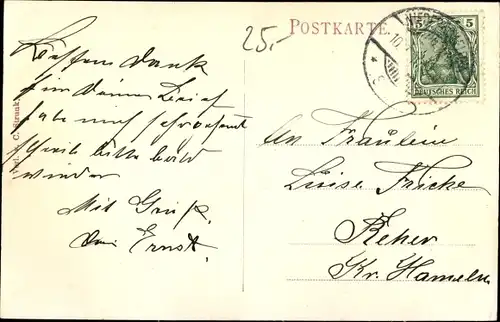 POSTKARTE.
25.-
5 5
DEUTSCHES REICH
Besten Dank
für deinen Brief
habe mich sehr gefreut
schreib bitte bald
wieder
Mit Gruß.
dein Ernst.
An Fräulein
Luise Fricke
Reher
Kr. Hameln